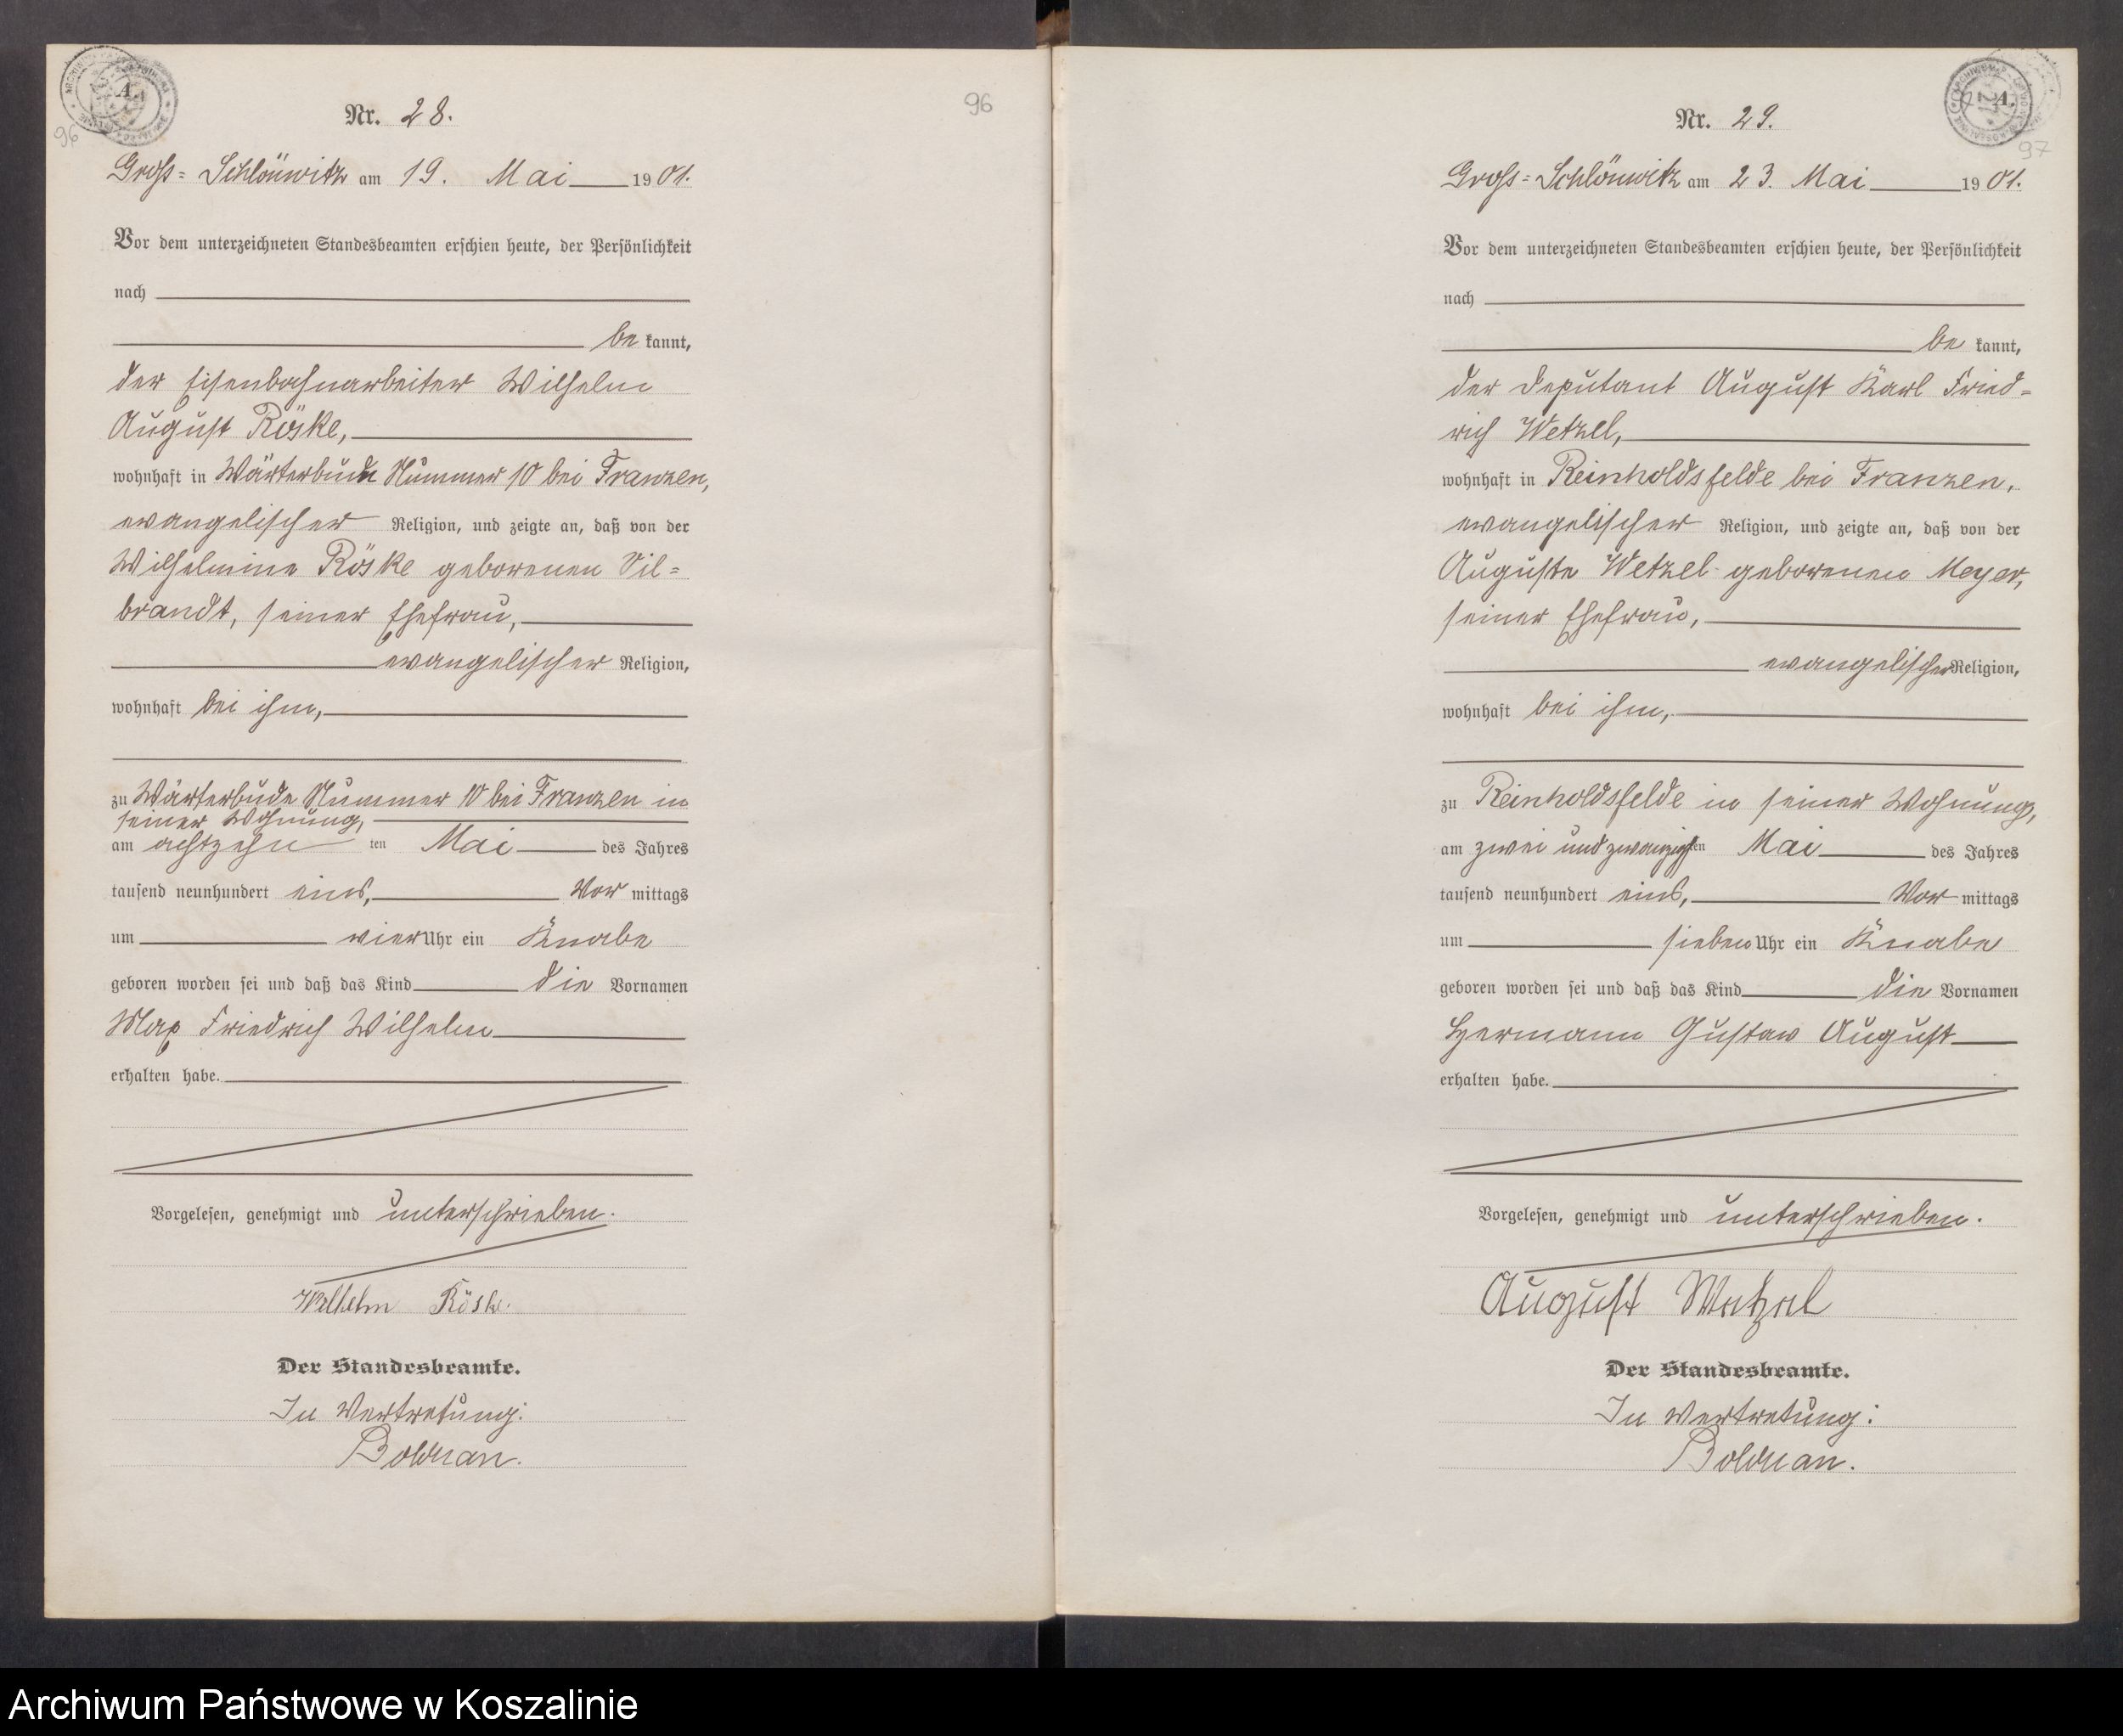 96
Nr. 28.
Gross-Schlönwitz am 19. Mai 1901.
Vor dem unterzeichneten Standesbeamten erschien heute, der Persönlichkeit
nach
be kannt,
der Eisenbahnarbeiter Wilhelm
August Röske,
wohnhaft in Wärterbude Nummer 10 bei Franzen,
evangelischer Religion, und zeigte an, daß von der
Wilhelmine Röske geborenen Sil-
brandt, seiner Ehefrau,
evangelischer Religion,
wohnhaft bei ihm,
zu Wärterbude Nummer 10 bei Franzen in
seiner Wohnung,
am achtzehn ten Mai des Jahres
tausend neunhundert eins, Vor mittags
um vier Uhr ein Knabe
geboren worden sei und daß das Kind die Vornamen
Max Friedrich Wilhelm
erhalten habe.
Vorgelesen, genehmigt und unterschrieben.
Wilhelm Röske.
Der Standesbeamte.
In Vertretung:
Bolduan.
96
Nr. 29.
97
Gross-Schlönwitz am 23. Mai 1901.
Vor dem unterzeichneten Standesbeamten erschien heute, der Persönlichkeit
nach
be kannt,
der Deputant August Karl Fried-
rich Wetzel,
wohnhaft in Reinholdsfelde bei Franzen,
evangelischer Religion, und zeigte an, daß von der
Auguste Wetzel geborenen Meyer,
seiner Ehefrau,
evangelischer Religion,
wohnhaft bei ihm,
zu Reinholdsfelde in seiner Wohnung,
am zwei und zwanzigsten Mai des Jahres
tausend neunhundert eins, Vor mittags
um sieben Uhr ein Knabe
geboren worden sei und daß das Kind die Vornamen
Hermann Gustav August
erhalten habe.
Vorgelesen, genehmigt und unterschrieben.
August Wetzel
Der Standesbeamte.
In Vertretung:
Bolduan.
Archiwum Państwowe w Koszalinie